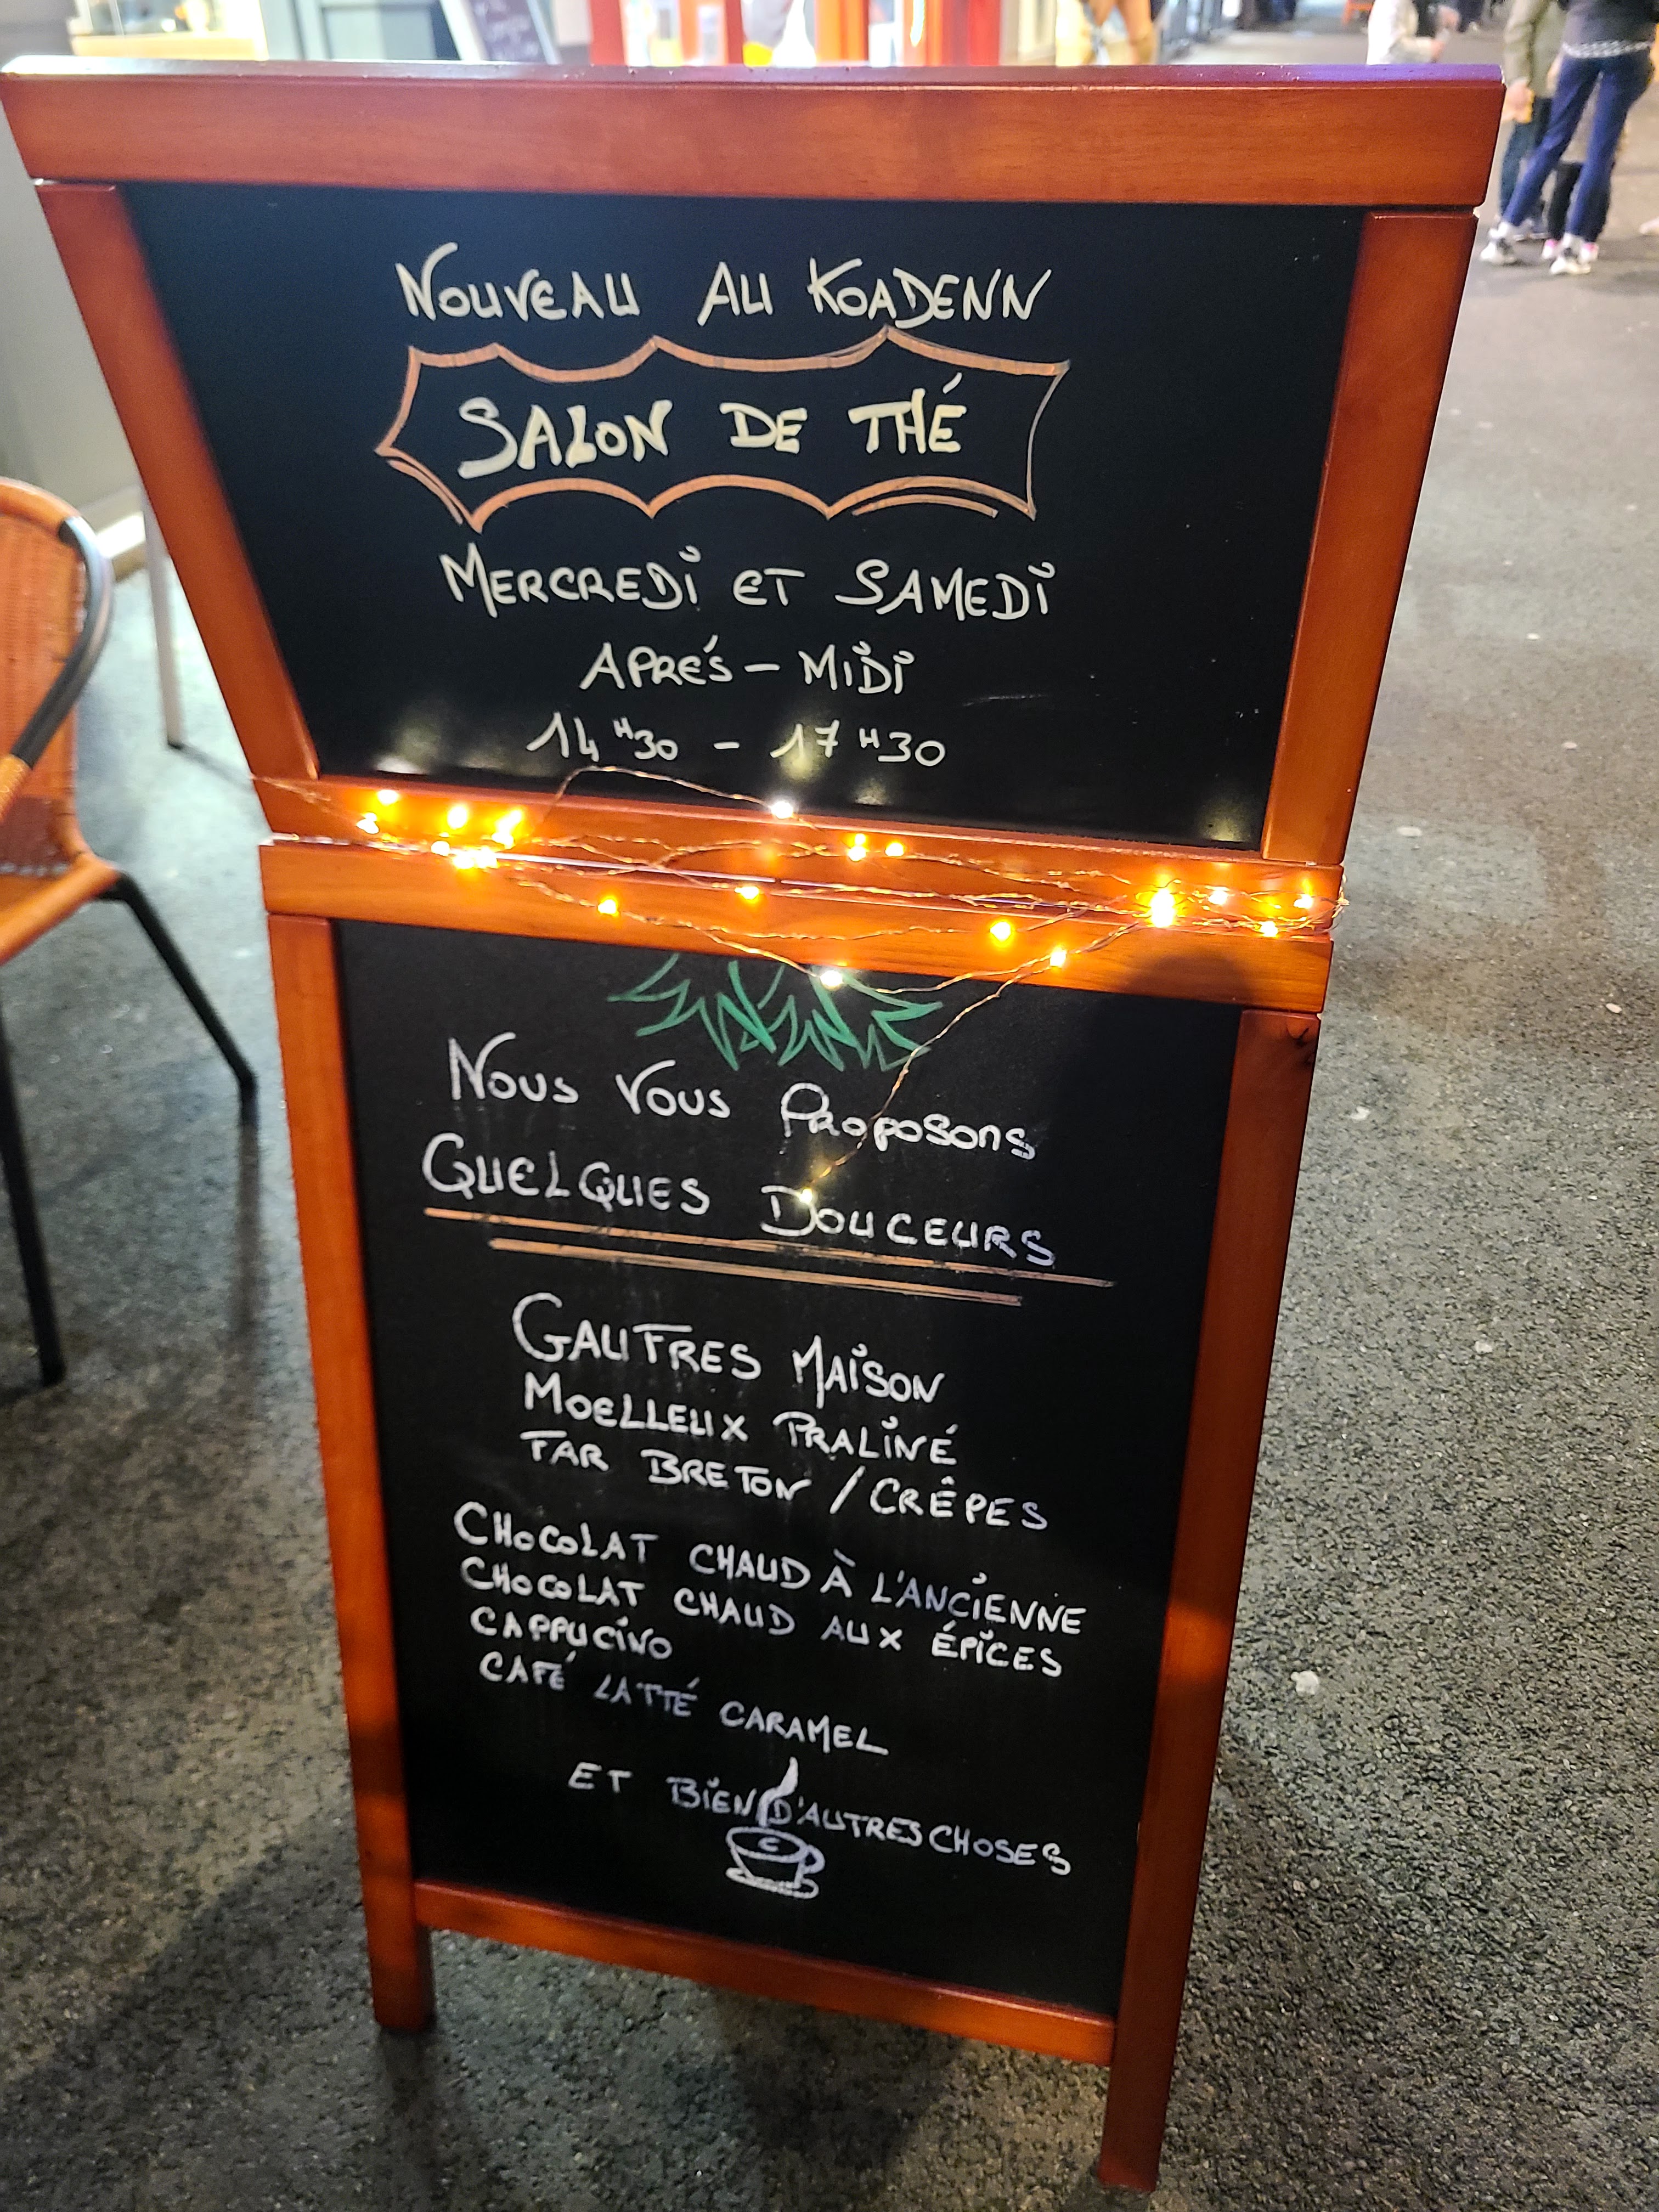 NOUVEAU AU KOADENN
SALON DE THÉ
MERCREDI ET SAMEDI
APRÉS - MIDI
14H30 - 17H30
NOUS VOUS PROPOSONS
QUELQUES DOUCEURS
GAUFRES MAISON
MOELLEUX PRALINÉ
FAR BRETON / CRÊPES
CHOCOLAT CHAUD À L'ANCIENNE
CHOCOLAT CHAUD AUX ÉPICES
CAPPUCINO
CAFÉ LATTÉ CARAMEL
ET BIEN D'AUTRES CHOSES